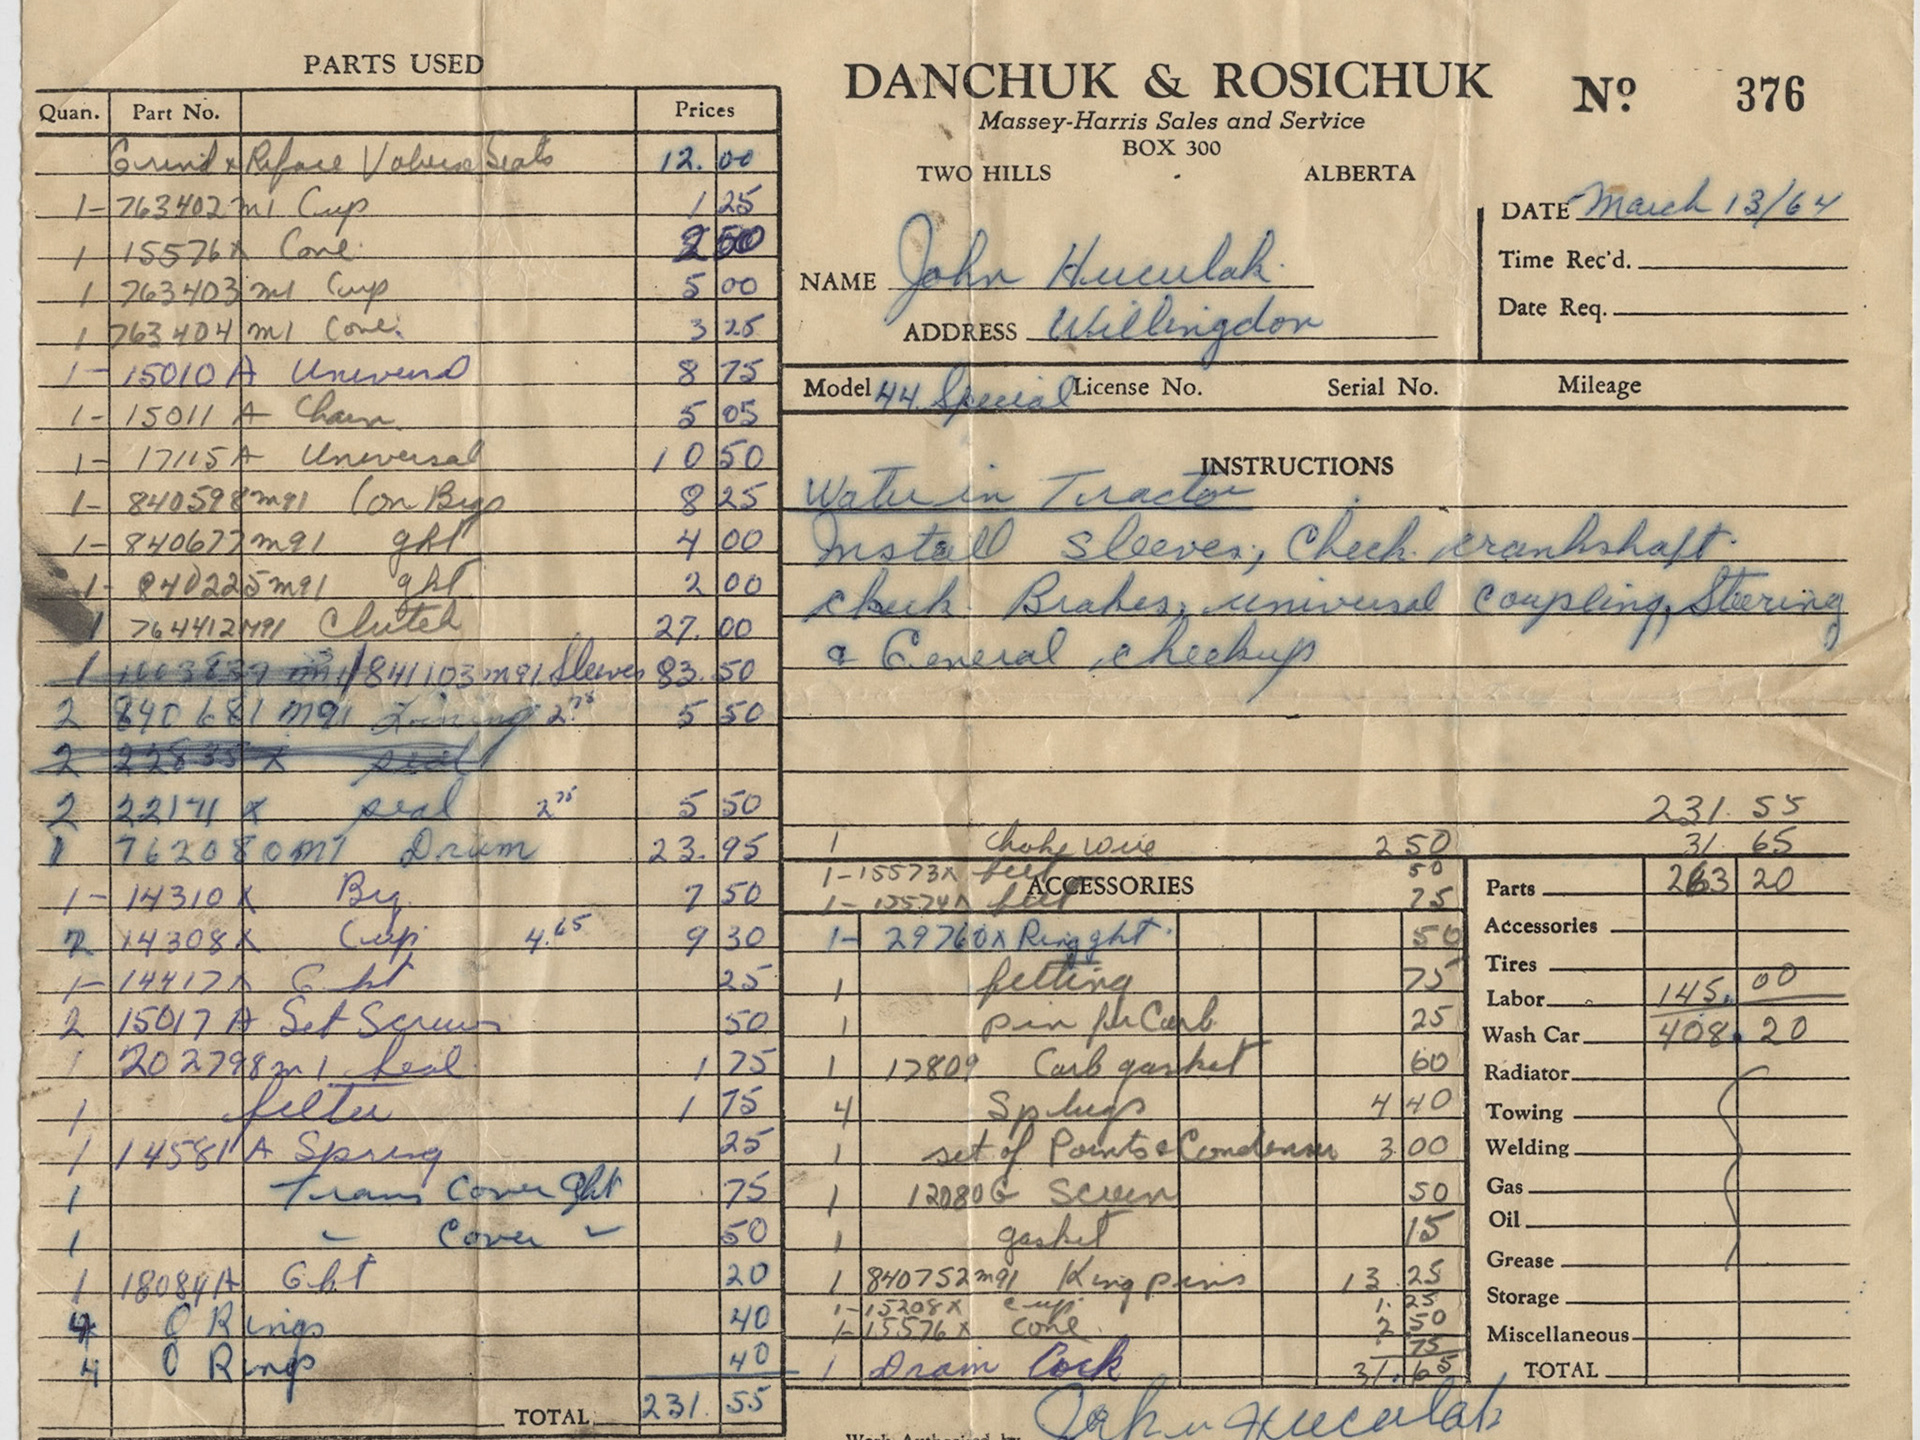 PARTS USED
Quan. Part No. Prices
Grind & Reface Valves Seats 12.00
1- 763402 m1 Cup 1 25
1 15576X Cone 2 50
1 763403 m1 Cup 5 00
1 763404 m1 Cone 3 25
1- 15010 A Universal 8 75
1- 15011 A Chain 5 05
1- 17115 A Universal 10 50
1- 840598 m91 Con Brgs 8 25
1- 840677 m91 ght 4 00
1- 840225 m91 ght 2 00
1 764412 M91 Clutch 27.00
1 841103 m91 Sleeves 83.50
2 840681 M91 Lining 2.75 5 50
2 22835 X seal
2 22171 X seal 2 75 5 50
1 762080 M1 Drum 23.95
1- 14310 X Brg. 7 50
2 14308 X Cup 4.65 9 30
1- 14417 X G. kt 25
2 15017 A Set Screws 50
1 202798 m1 Seal 1 75
1 filter 1 75
1 14581 A Spring 25
1 Trans Cover Ght 75
1 " Cover " 50
1 18084 A G.kt 20
4 O Rings 40
4 O Rings 40
TOTAL 231.55
DANCHUK & ROSICHUK
Massey-Harris Sales and Service
BOX 300
TWO HILLS ALBERTA
No. 376
DATE March 13/64
Time Rec'd.
Date Req.
NAME John Huculak
ADDRESS Willingdon
Model 44 Special License No. Serial No. Mileage
INSTRUCTIONS
Water in Tractor
Install Sleeves, Check crankshaft
check Brakes, universal coupling, Steering
& General checkup
231.55
1 Choke wire 2 50 31 65
1- 15573X felt 50
ACCESSORIES
1- 15574X felt 75
1- 29760X Ring ght. 50
1 fitting 75
1 pin for Carb 25
1 17809 Carb gasket 60
4 Sp plugs 4 40
1 set of Points & Condenser 3 00
1 12080G Screen 50
1 gasket 15
1 840752 m91 King pins 13 25
1- 15208X cup 1.25
1- 15576X cone 2 50
1 Drain Cock 75
31.65
Parts 263 20
Accessories
Tires
Labor 145.00
Wash Car 408.20
Radiator
Towing
Welding
Gas
Oil
Grease
Storage
Miscellaneous
TOTAL
Work Authorized by John Huculak